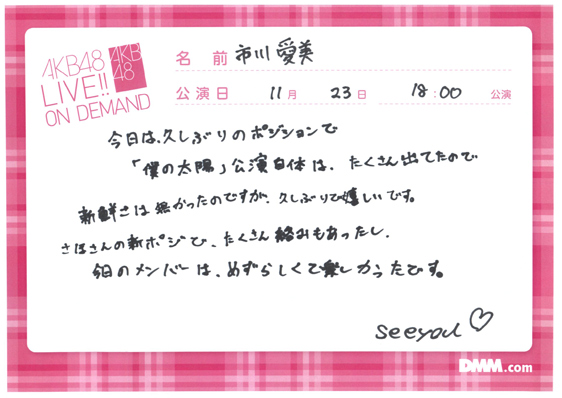 AKB48
LIVE!!
ON DEMAND
AKB
48
名 前 市川 愛美
公演日 11月 23日 18:00 公演
今日は、久しぶりのポジションで
「僕の太陽」公演自体は、たくさん出てたので
新鮮さは無かったのですが、久しぶりで嬉しいです。
さほさんの新ポジで、たくさん絡みもあったし、
今日のメンバーは、めずらしくて楽しかったです。
seeyou♡
DMM.com